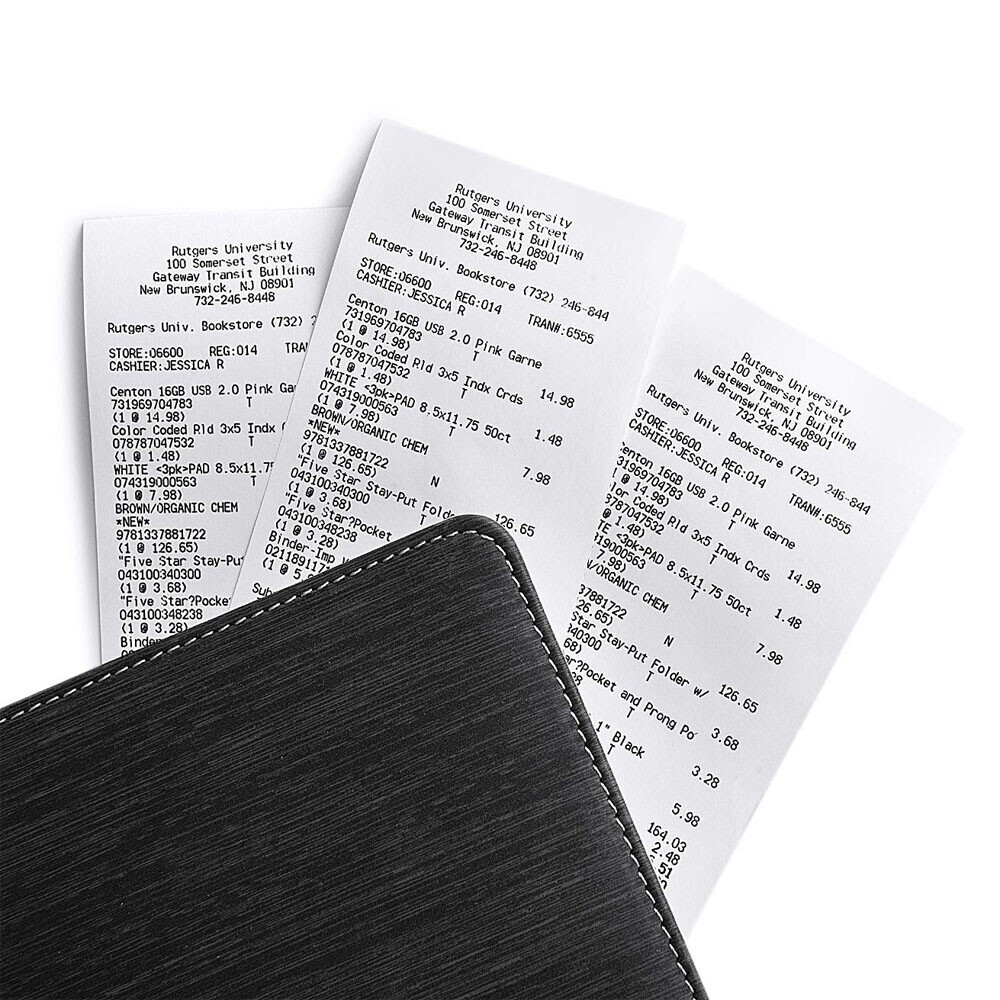 Rutgers University
100 Somerset Street
Gateway Transit Building
New Brunswick, NJ 08901
732-246-8448
Rutgers Univ. Bookstore (732) 2
STORE:06600 REG:014 TRAN
CASHIER:JESSICA R
Centon 16GB USB 2.0 Pink Ga
731969704783 T
(1 @ 14.98)
Color Coded Rld 3x5 Indx
078787047532 T
(1 @ 1.48)
WHITE <3pk>PAD 8.5x11.75
074319000563 T
(1 @ 7.98)
BROWN/ORGANIC CHEM
*NEW*
9781337881722
(1 @ 126.65)
"Five Star Stay-Pu
043100340300
(1 @ 3.68)
"Five Star?Pocke
043100348238
(1 @ 3.28)
Binder
Rutgers University
100 Somerset Street
Gateway Transit Building
New Brunswick, NJ 08901
732-246-8448
Rutgers Univ. Bookstore (732) 246-844
STORE:06600 REG:014 TRAN#:6555
CASHIER:JESSICA R
Centon 16GB USB 2.0 Pink Garne
731969704783 T
(1 @ 14.98) 14.98
Color Coded Rld 3x5 Indx Crds
078787047532 T
(1 @ 1.48) 1.48
WHITE <3pk>PAD 8.5x11.75 50ct
074319000563 T
(1 @ 7.98) 7.98
BROWN/ORGANIC CHEM
*NEW*
9781337881722 N
(1 @ 126.65) 126.65
"Five Star Stay-Put Folde
043100340300
(1 @ 3.68)
"Five Star?Pocket
043100348238
(1 @ 3.28)
Binder-Imp
02118911
(1 @ 5
Sub
Rutgers University
100 Somerset Street
Gateway Transit Building
New Brunswick, NJ 08901
732-246-8448
Rutgers Univ. Bookstore (732) 246-844
STORE:06600 REG:014 TRAN#:6555
CASHIER:JESSICA R
enton 16GB USB 2.0 Pink Garne
31969704783 T
@ 14.98) 14.98
lor Coded Rld 3x5 Indx Crds
78787047532 T
@ 1.48) 1.48
TE <3pk>PAD 8.5x11.75 50ct
19000563 T
7.98) 7.98
N/ORGANIC CHEM
37881722 N
26.65) 126.65
ar Stay-Put Folder w/
40300 T
68) 3.68
ar?Pocket and Prong Po
38 T
3.28
1" Black
T
5.98
164.03
2.48
.51